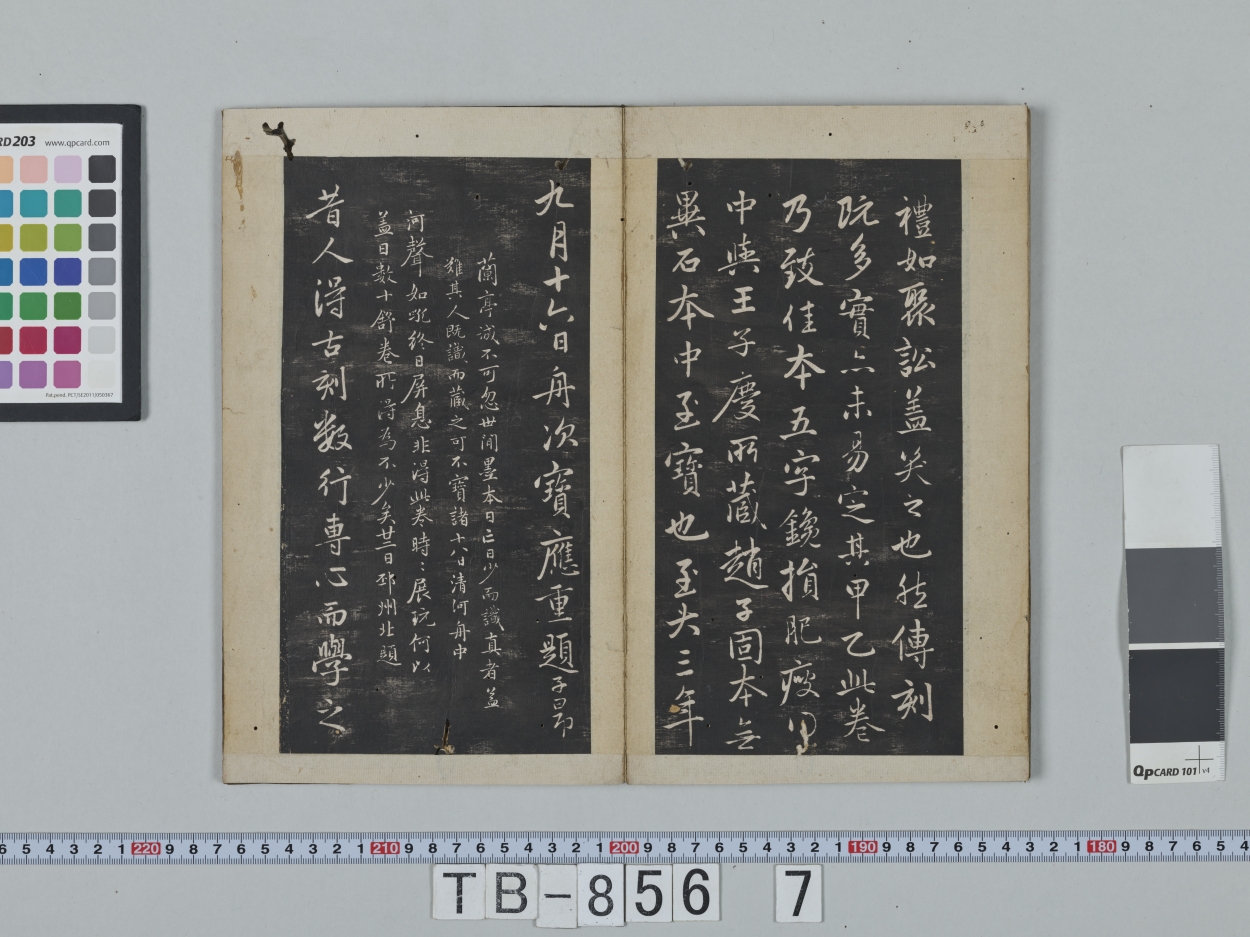 禮如聚訟蓋笑之也然傳刻
既多實亦未易定其甲乙此卷
乃致佳本五字鑱損肥瘦得
中與王子慶所藏趙子固本無
異石本中至寶也至大三年
九月十六日舟次寶應重題子昂
蘭亭誠不可忽世間墨本日亡日少而識真者蓋
難其人既識而藏之可不寶諸十八日清河舟中
河聲如吼終日屏息非得此卷時時展玩何以
蓋日數十舒卷所得為不少矣廿二日邳州北題
昔人得古刻数行専心而學之
CARD 203 www.qpcard.com
Pat.pend. PCT/SE2011/050367
QpCARD 101 v4
6 5 4 3 2 1 220 9 8 7 6 5 4 3 2 1 210 9 8 7 6 5 4 3 2 1 200 9 8 7 6 5 4 3 2 1 190 9 8 7 6 5 4 3 2 1 180 9 8 7 6 5 4
TB-856 7